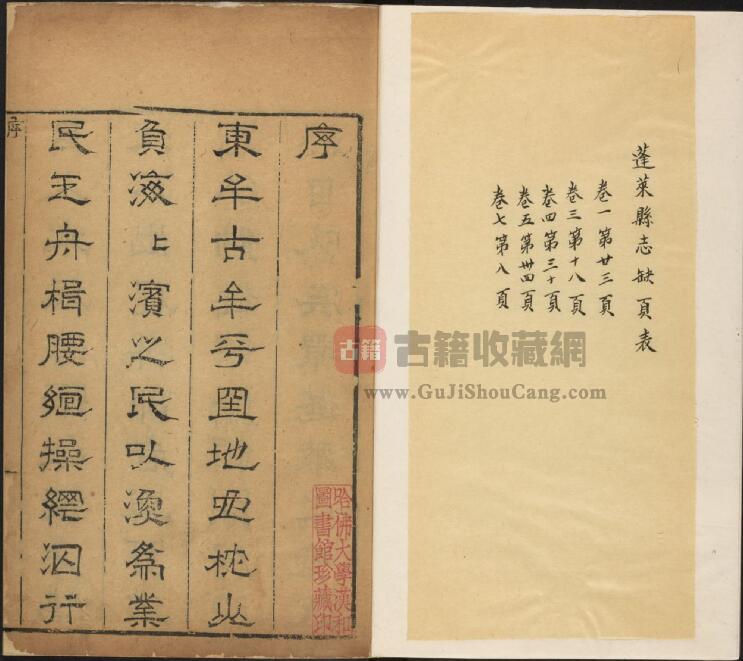 蓬萊縣志缺頁表
卷一第廿三頁
卷三第十八頁
卷四第三十頁
卷五第卅四頁
卷七第八頁
序
東牟古牟平地枕山
負海上濱之民以漁為業
民舟楫腰絙操網泅行
序
哈佛大學漢和
圖書館珍藏印
古籍
古籍收藏網
www.GuJiShouCang.com